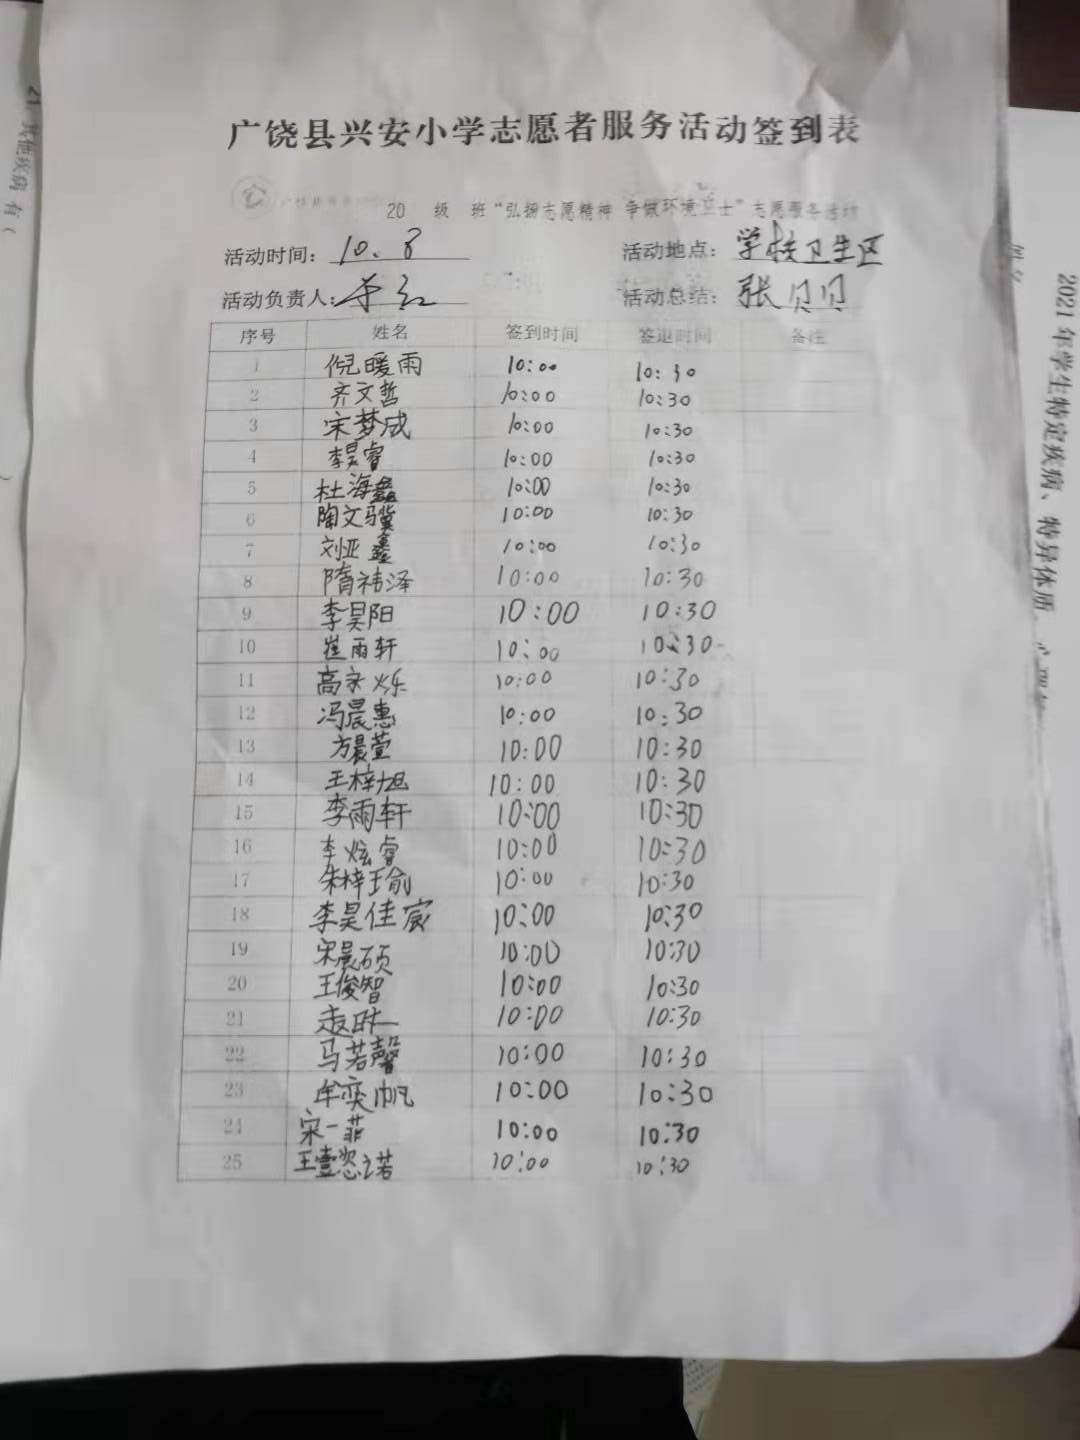 广饶县兴安小学志愿者服务活动签到表
20 级 班“弘扬志愿精神 争做环境卫士”志愿服务活动
活动时间：10.8 活动地点：学校卫生区
活动负责人： 活动总结：张贝贝
序号 姓名 签到时间 签退时间 备注
1 倪暖雨 10:00 10:30
2 齐文哲 10:00 10:30
3 宋梦成 10:00 10:30
4 李昊睿 10:00 10:30
5 杜海鑫 10:00 10:30
6 陶文骥 10:00 10:30
7 刘亚鑫 10:00 10:30
8 隋祎泽 10:00 10:30
9 李昊阳 10:00 10:30
10 崔雨轩 10:00 10:30
11 高永烁 10:00 10:30
12 冯晨惠 10:00 10:30
13 方晨萱 10:00 10:30
14 王梓旭 10:00 10:30
15 李雨轩 10:00 10:30
16 李炫睿 10:00 10:30
17 朱梓瑜 10:00 10:30
18 李昊佳宸 10:00 10:30
19 宋晨硕 10:00 10:30
20 王俊智 10:00 10:30
21 10:00 10:30
22 马若馨 10:00 10:30
23 牟奕帆 10:00 10:30
24 宋一菲 10:00 10:30
25 王壹恣之诺 10:00 10:30
21、其他疾病 有（
2021年学生特定疾病、特异体质